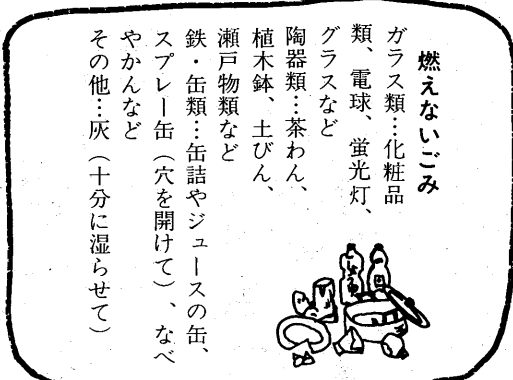 燃えないごみ
ガラス類…化粧品
類、電球、蛍光灯、
グラスなど
陶器類…茶わん、
植木鉢、土びん、
瀬戸物類など
鉄・缶類…缶詰やジュースの缶、
スプレー缶（穴を開けて）、なべ
やかんなど
その他…灰（十分に湿らせて）